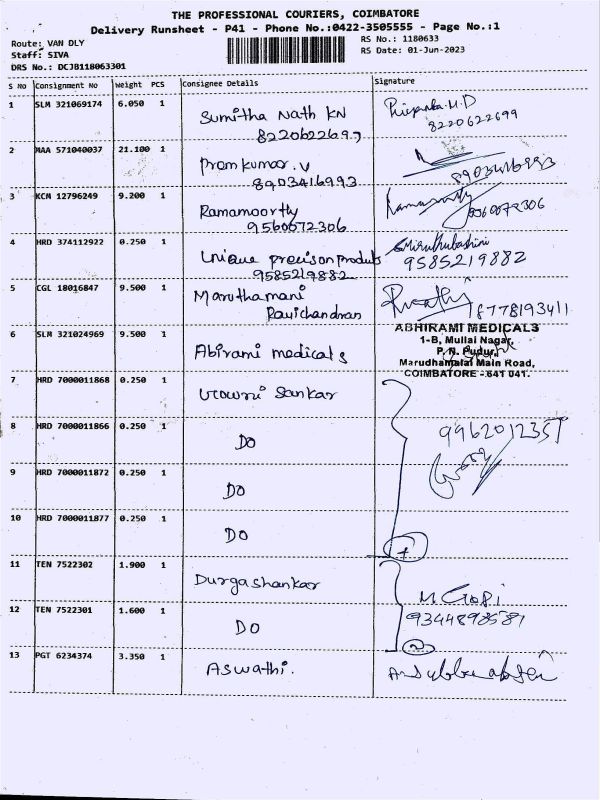 THE PROFESSIONAL COURIERS, COIMBATORE
Delivery Runsheet - P41 - Phone No.:0422-3505555 - Page No.:1
Route: VAN DLY
RS No.: 1180633
Staff: SIVA
RS Date: 01-Jun-2023
DRS No.: DCJB118063301
S No Consignment No Weight PCS Consignee Details Signature
1 SLM 321069174 6.050 1 Sumitha Nath KN Priyanka.H.D
8220622699 8220622699
2 MAA 571040037 21.100 1 Premkumar.V
8903416993 8903416993
3 KCM 12796249 9.200 1 Ramamoorthy Ramamoorthy
9560072306 9560072306
4 HRD 374112922 0.250 1 Unique precison produts
9585219882 9585219882
5 CGL 18016847 9.500 1 Maruthamani
Ravichandran 18778193411
6 SLM 321024969 9.500 1 Abirami medicals
ABHIRAMI MEDICALS
1-B, Mullai Nagar,
P. N. Pudur,
Marudhamalai Main Road,
COIMBATORE - 641 041.
7 HRD 7000011868 0.250 1 Gowri Sankar
8 HRD 7000011866 0.250 1 DO 9962012351
9 HRD 7000011872 0.250 1 DO
10 HRD 7000011877 0.250 1 DO
11 TEN 7522302 1.900 1 Durgashankar M Gopi
12 TEN 7522301 1.600 1 DO 9344898581
2
13 PGT 6234374 3.350 1 Aswathi.